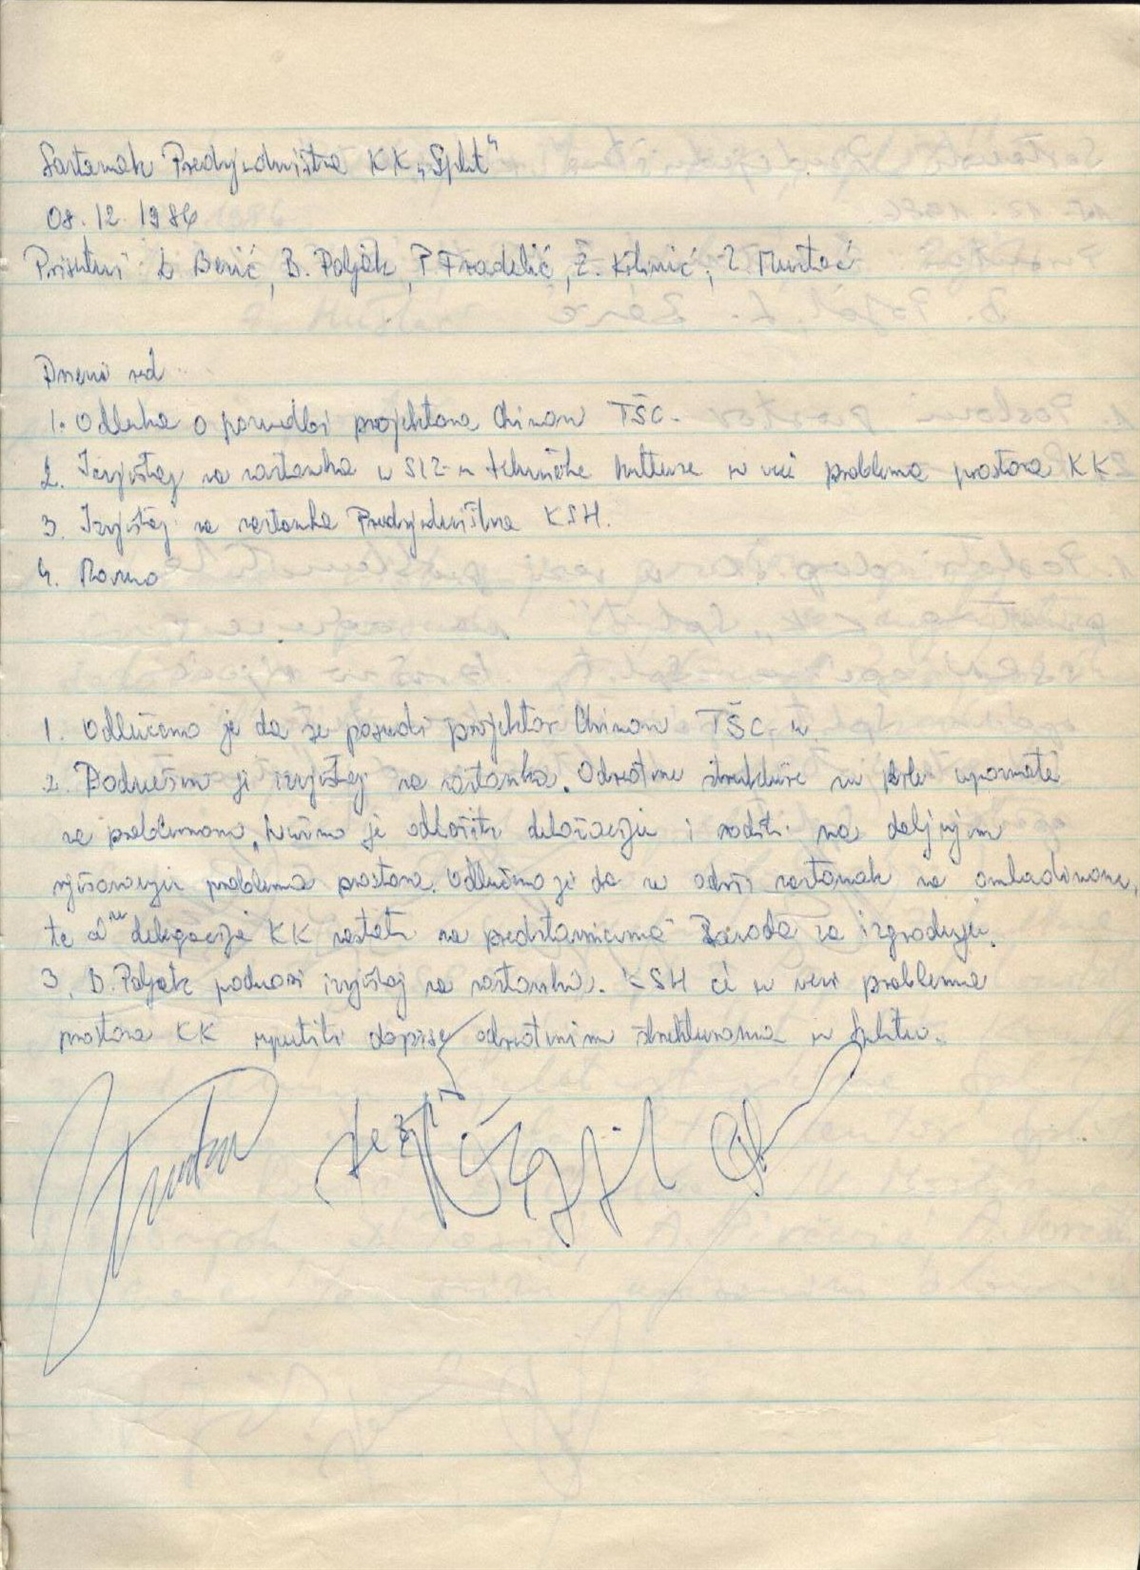 Sastanak Predsjedništva KK "Split"
08.12.1986
Prisutni: Berić, B. Poljak, P. Fradelić, Ž. Krhinić, Mustać
Dnevni red
1. Odluka o posudbi projektora Chinon TŠC.
2. Izvještaj sa sastanka u SIZ-u tehničke kulture u vezi problema prostora KK
3. Izvještaj sa sastanka Predsjedništva KSH.
4. Razno
1. Odlučeno je da se posudi projektor Chinon TŠC-u
2. Podnešen je izvještaj sa sastanka. Odreðene strukture su bile upoznate
sa problemom, nužno je odložiti deložaciju i raditi na daljnjem
rješavanju problema prostora. Odlučeno je da se održi sastanak sa omladinom,
te da se delegacija KK sastati sa predstavnicima Zavoda za izgradnju.
3. B. Poljak podnosi izvještaj sa sastanka. KSH će u vezi problema
prostora KK uputiti dopise određenim strukturama u Splitu.